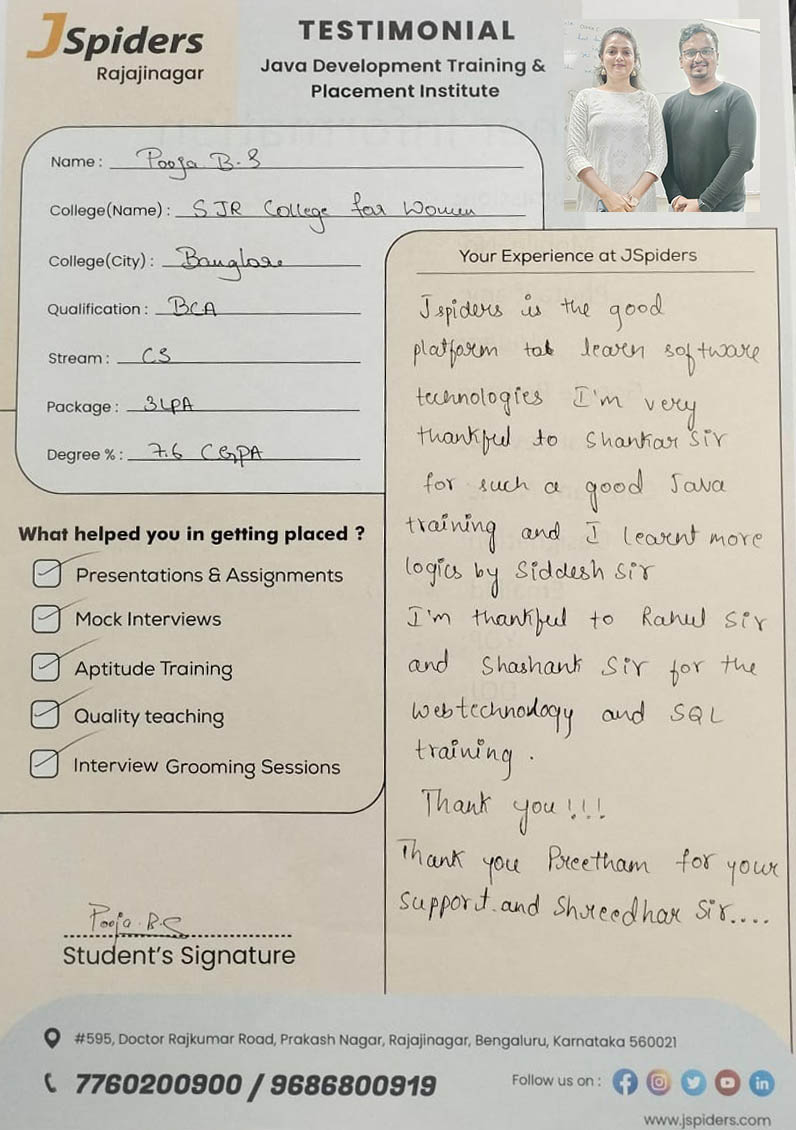 JSpiders
Rajajinagar
TESTIMONIAL
Java Development Training &
Placement Institute
Name : Pooja B.S
College(Name) : SJR College for Women
College(City) : Banglore
Qualification : BCA
Stream : CS
Package : 3LPA
Degree % : 7.6 CGPA
What helped you in getting placed ?
Presentations & Assignments
Mock Interviews
Aptitude Training
Quality teaching
Interview Grooming Sessions
Pooja.B.S
Student's Signature
Your Experience at JSpiders
Jspiders is the good
platform to learn software
technologies I'm very
thankful to Shankar Sir
for such a good Java
training and I learnt more
logics by Siddesh Sir
I'm thankful to Rahul Sir
and Shashank Sir for the
webtechnology and SQL
training.
Thank you!!!
Thank you Preetham for your
support.and Shreedhar Sir....
#595, Doctor Rajkumar Road, Prakash Nagar, Rajajinagar, Bengaluru, Karnataka 560021
7760200900 / 9686800919
Follow us on :
www.jspiders.com